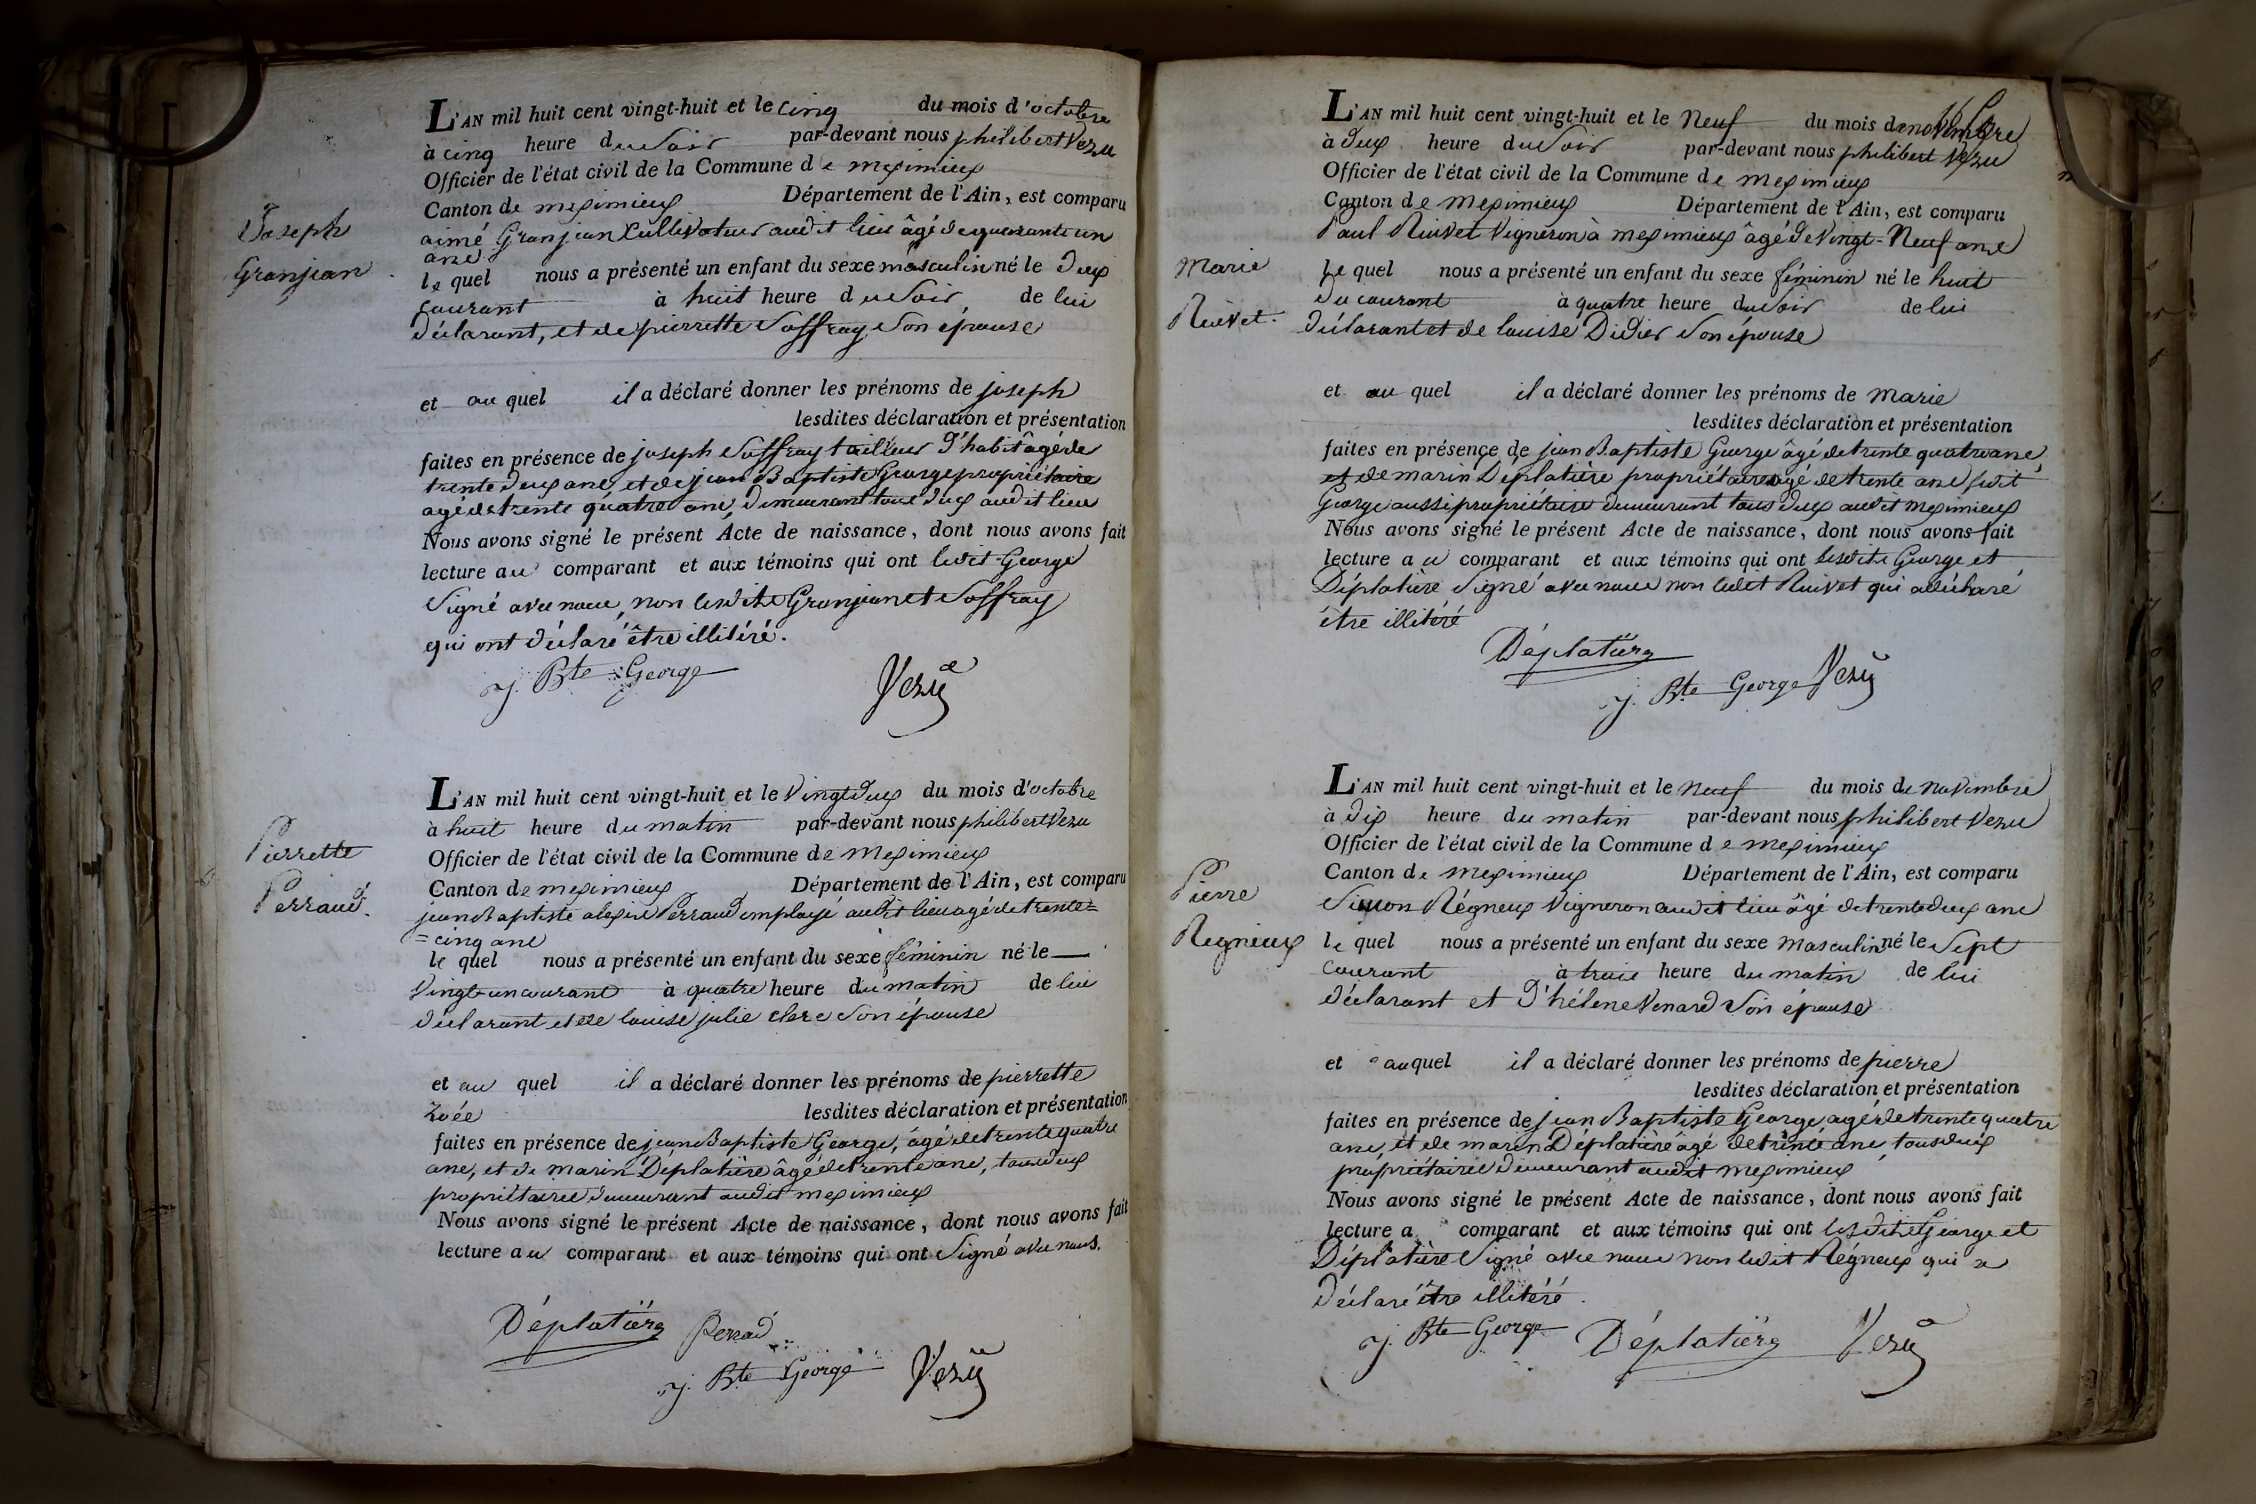 Joseph
Granjean
L'AN mil huit cent vingt-huit et le cinq du mois d'octobre
à cinq heure du soir par-devant nous philibert Vezu
Officier de l'état civil de la Commune de meximieux
Canton de meximieux Département de l'Ain, est comparu
aimé Granjean Cultivateur audit lieu âgé de quarante un
ans
le quel nous a présenté un enfant du sexe masculin né le deux
courant à huit heure du soir de lui
déclarant, et de pierrette Soffray son épouse
et au quel il a déclaré donner les prénoms de joseph
lesdites déclaration et présentation
faites en présence de joseph Soffray tailleur d'habit âgé de
trente deux ans, et de jean Baptiste George propriétaire
agé de trente quatre ans, demeurant tous deux audit lieu
Nous avons signé le présent Acte de naissance, dont nous avons fait
lecture au comparant et aux témoins qui ont ledit George
signé avec nous, non lesdits Granjean et Soffray
qui ont déclaré être illitéré.
j. Bte George Vezu
Pierrette
Perraud.
L'AN mil huit cent vingt-huit et le vingt deux du mois d'octobre
à huit heure du matin par-devant nous philibert Vezu
Officier de l'état civil de la Commune de meximieux
Canton de meximieux Département de l'Ain, est comparu
jean Baptiste alexis Perraud employé audit lieu agé de trente=
=cinq ans
le quel nous a présenté un enfant du sexe féminin né le
vingt un courant à quatre heure du matin de lui
déclarant et de louise julie clerc son épouse
et au quel il a déclaré donner les prénoms de pierrette
zoée lesdites déclaration et présentation
faites en présence de jean Baptiste George, âgé de trente quatre
ans, et de marin Déplatière âgé de trente ans, tous deux
propriétaires demeurant audit meximieux
Nous avons signé le présent Acte de naissance, dont nous avons fait
lecture au comparant et aux témoins qui ont signé avec nous.
Déplatière Perraud
j. Bte George Vezu
Marie
Ruivet.
L'AN mil huit cent vingt-huit et le neuf du mois de novembre
à deux heure du soir par-devant nous philibert Vezu
Officier de l'état civil de la Commune de meximieux
Canton de meximieux Département de l'Ain, est comparu
Paul Ruivet vigneron à meximieux âgé de vingt-neuf ans
le quel nous a présenté un enfant du sexe féminin né le huit
du courant à quatre heure du soir de lui
déclarant et de louise Didier son épouse
et au quel il a déclaré donner les prénoms de marie
lesdites déclaration et présentation
faites en présence de jean Baptiste George âgé de trente quatre ans
et de marin Déplatière propriétaire agé de trente ans ledit
George aussi propriétaire demeurant tous deux audit meximieux
Nous avons signé le présent Acte de naissance, dont nous avons fait
lecture au comparant et aux témoins qui ont lesdits George et
Déplatière signé avec nous non ledit Ruivet qui a déclaré
être illitéré
Déplatière
j. Bte George Vezu
Pierre
Regnieux
L'AN mil huit cent vingt-huit et le neuf du mois de novembre
à dix heure du matin par-devant nous philibert Vezu
Officier de l'état civil de la Commune de meximieux
Canton de meximieux Département de l'Ain, est comparu
Simon Régneux vigneron audit lieu âgé de trente deux ans
le quel nous a présenté un enfant du sexe masculin né le sept
courant à trois heure du matin de lui
déclarant et d'hélene Venard son épouse
et au quel il a déclaré donner les prénoms de pierre
lesdites déclaration et présentation
faites en présence de jean Baptiste George, ager de trente quatre
ans, et de marin Déplatière âgé de trente ans, tous deux
propriétaires demeurant audit meximieux
Nous avons signé le présent Acte de naissance, dont nous avons fait
lecture a comparant et aux témoins qui ont lesdits George et
Déplatière signé avec nous non ledit Régneux qui a
déclaré être illitéré.
j. Bte George Déplatière Vezu